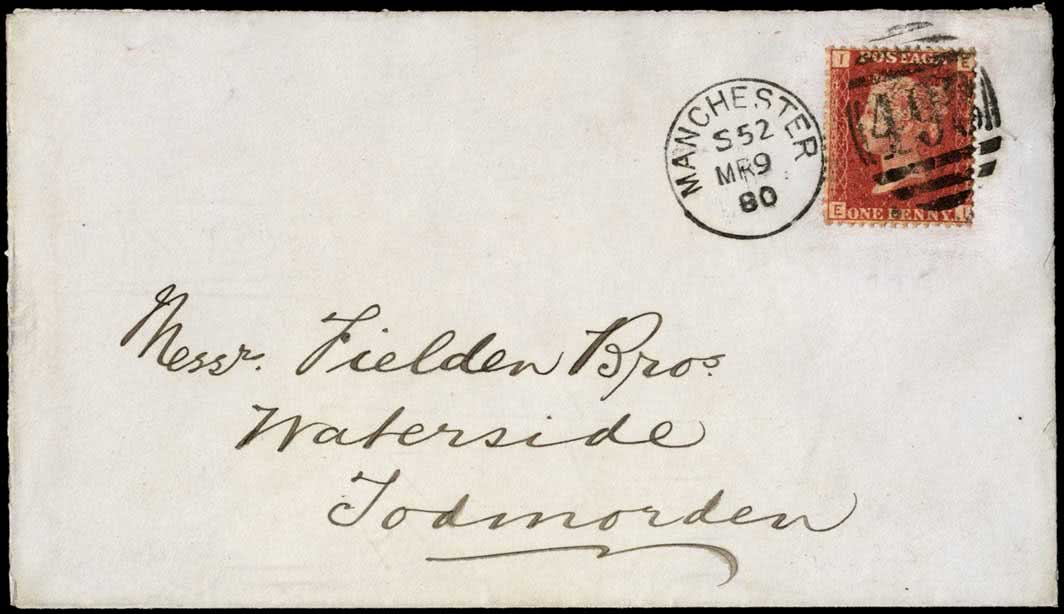 I POSTAGE E
MANCHESTER
S52
MR9
80
49
E ONE PENNY I
Messrs. Fielden Bros.
Waterside
Todmorden